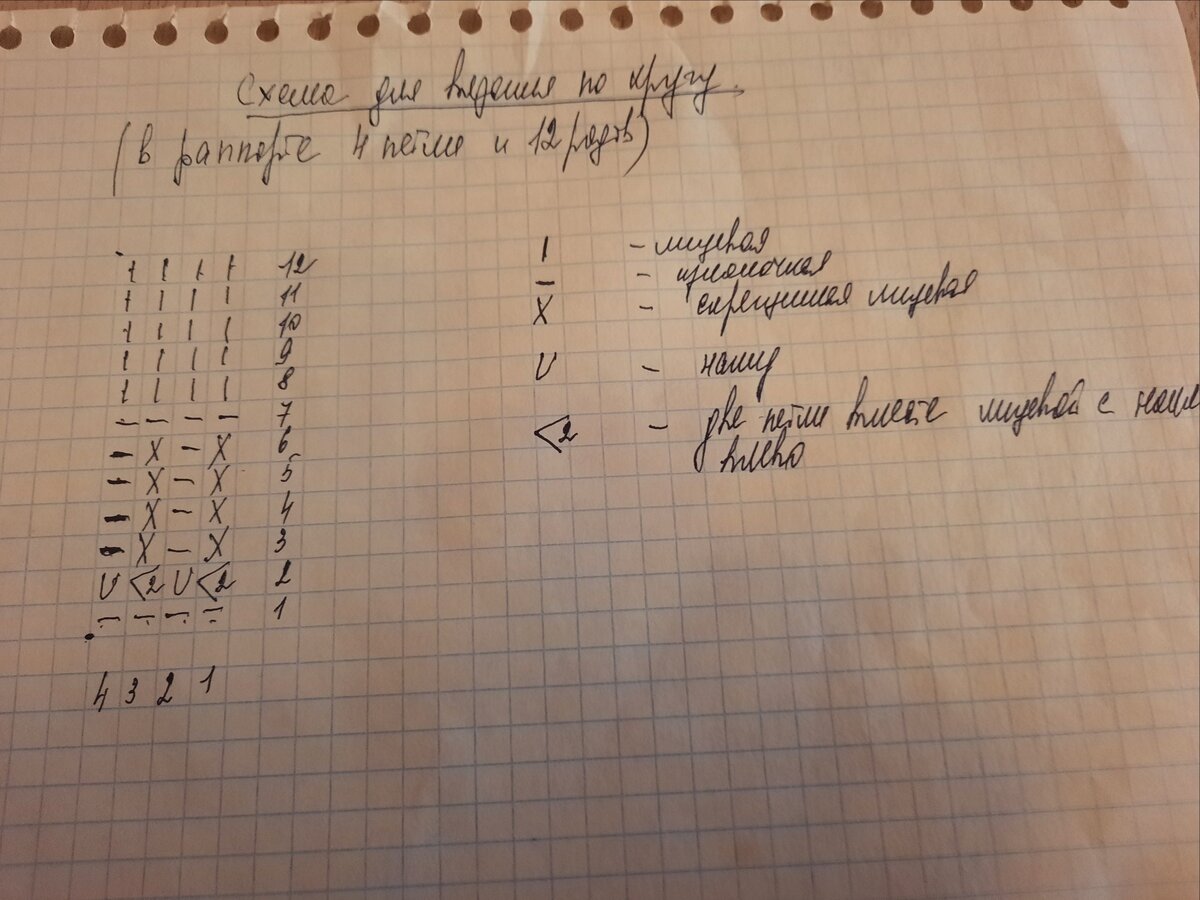 Схема для вязания по кругу
(в раппорте 4 петли и 12 рядов)
| | | | 12
| | | | 11
| | | | 10
| | | | 9
| | | | 8
– – – – 7
– X – X 6
– X – X 5
– X – X 4
– X – X 3
U <2 U <2 2
– – – – 1
4 3 2 1
| – лицевая
– – изнаночная
X – скрещенная лицевая
U – накид
<2 – две петли вместе лицевой с накл
влево